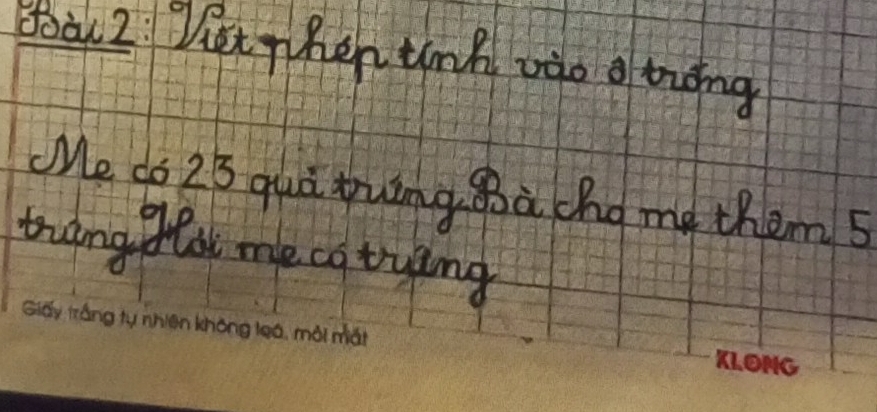 Bài 2: Viết phép tính vào ô trống
Mẹ có 23 quả trứng. Bà cho mẹ thêm 5
trứng. Hỏi mẹ có trứng
Giấy trắng tự nhiên không loá, mỏi mắt
KLONG